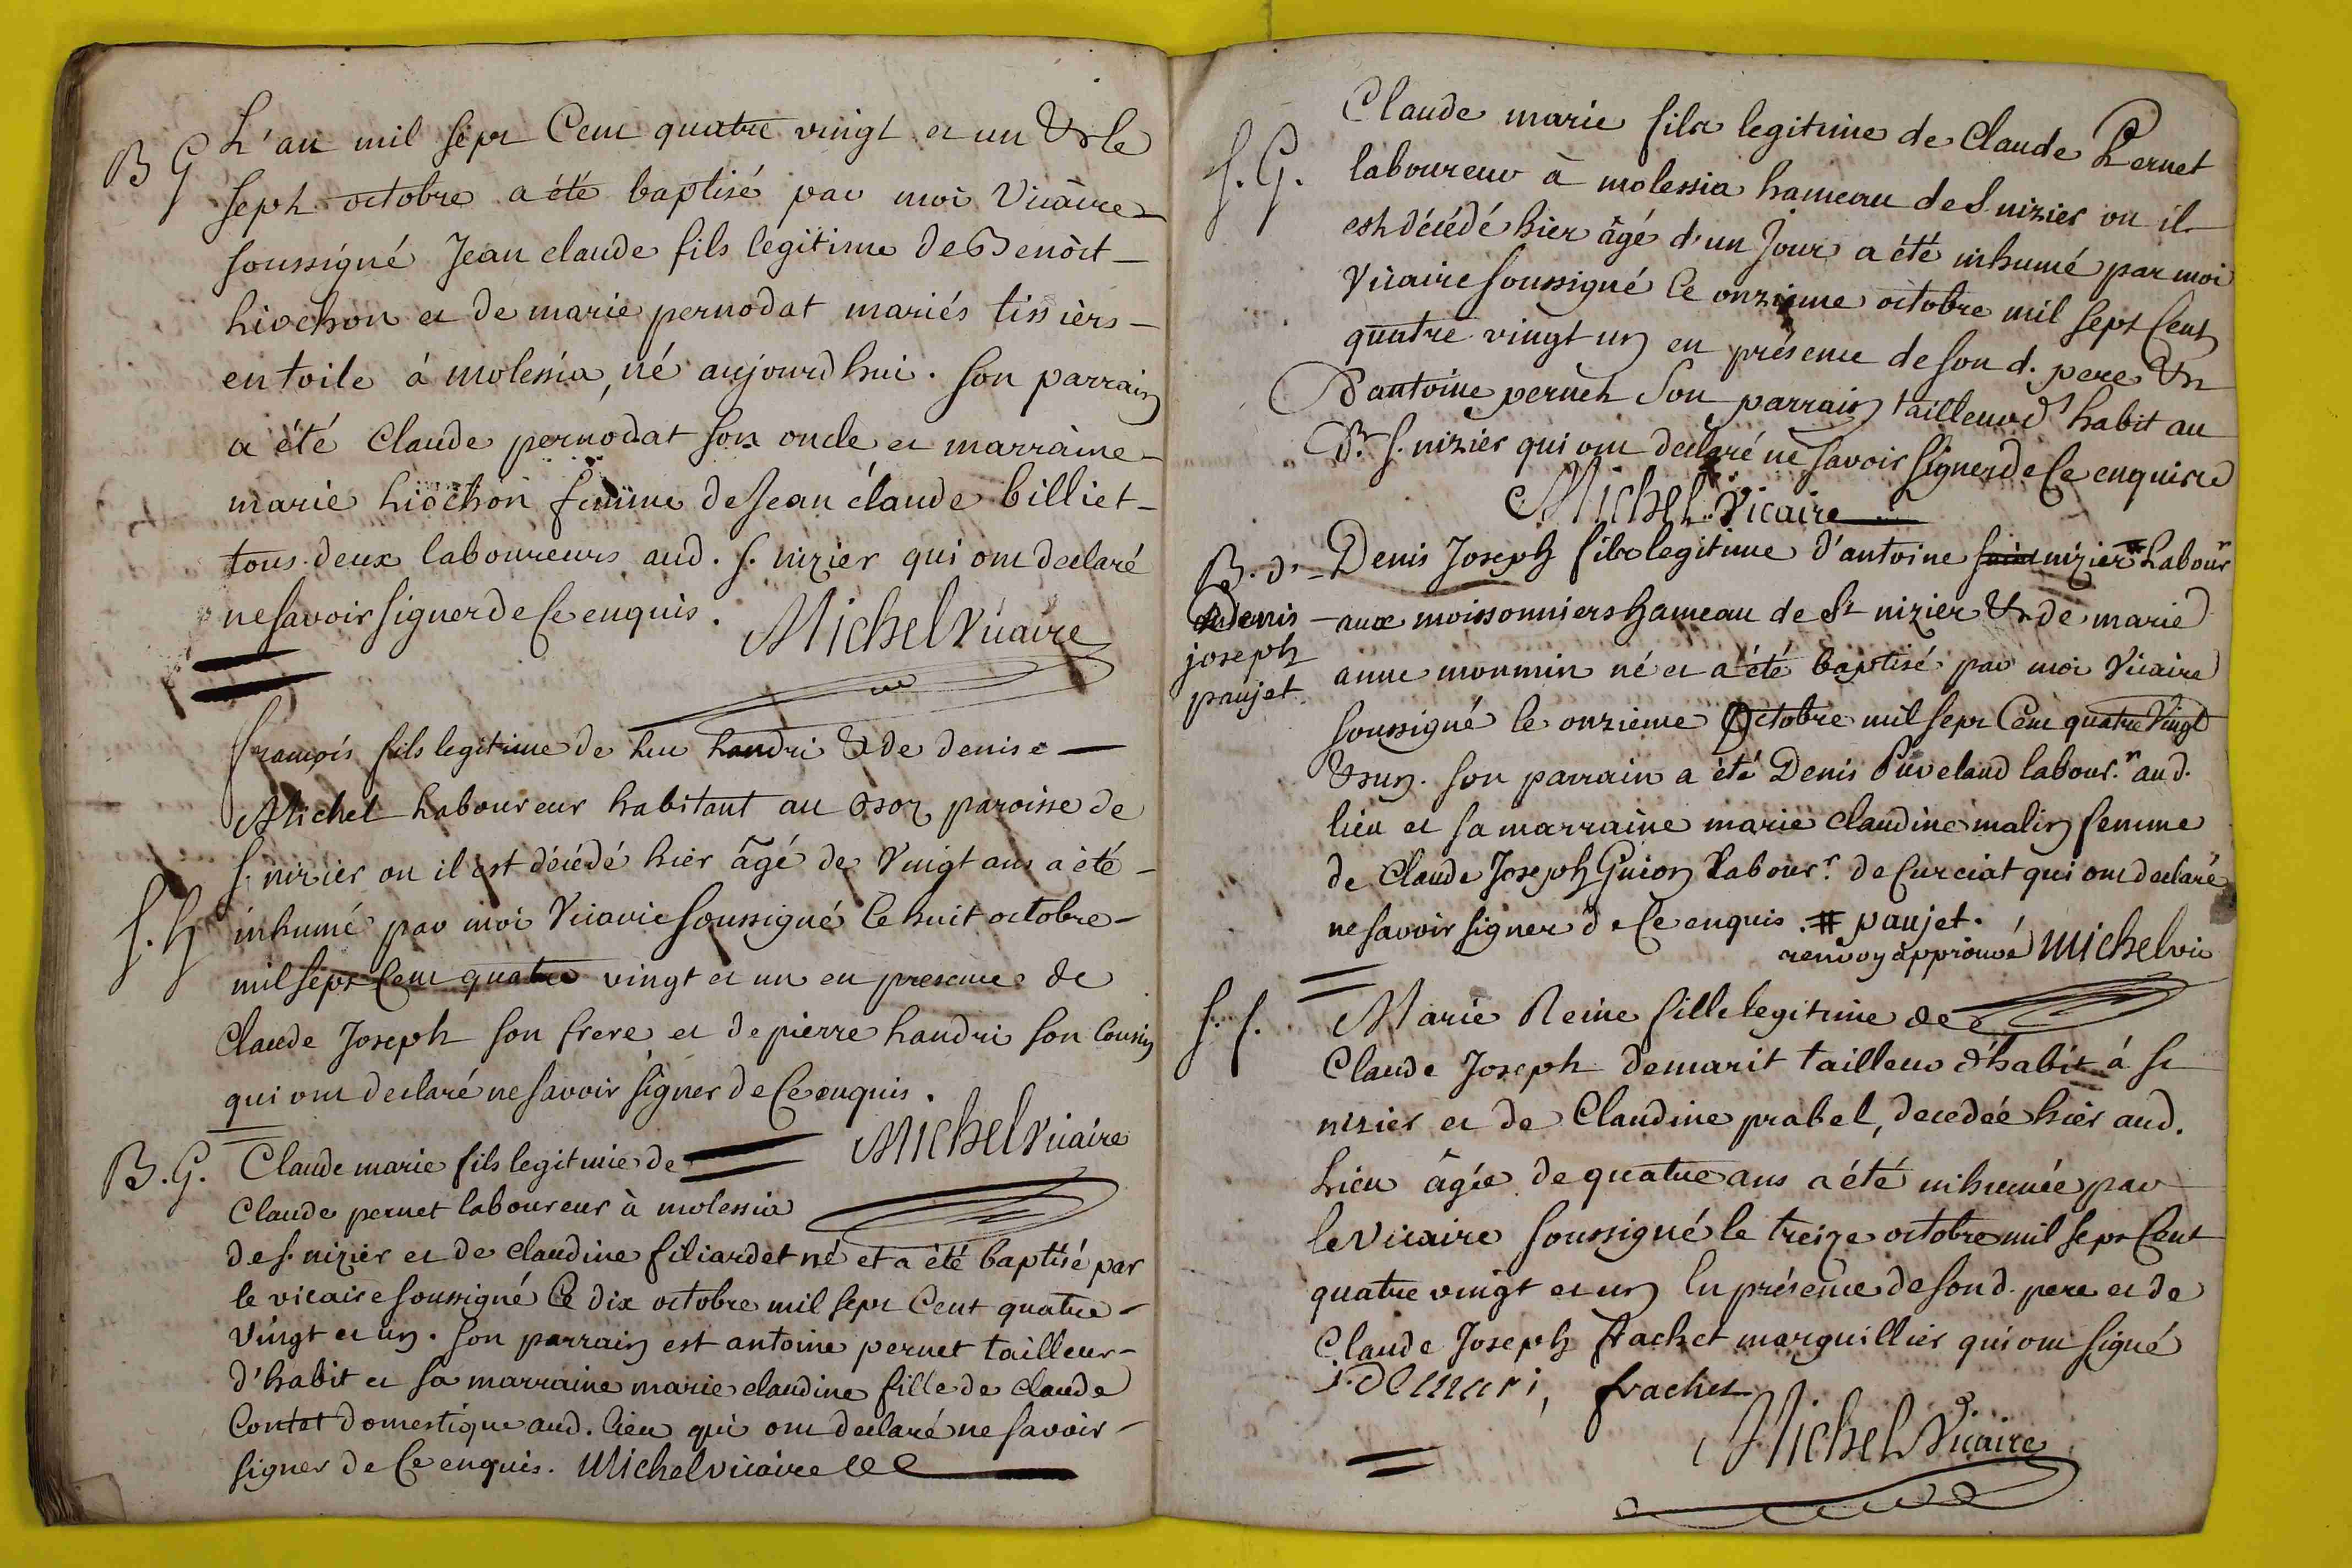 B G
L'an mil sept Cent quatre vingt et un & le
sept octobre a été baptisé par moi Vicaire
soussigné Jean claude fils legitime de Benoit
Liochon et de marie pernodat mariés tissiers
en toile à molessia, né aujourdhui. son parrain
a été Claude pernodat son oncle et marraine
marie Liochon femme de Jean claude billiet
tous deux laboureurs aud. s. nizier qui ont declaré
ne savoir signer de ce enquis.
Michel Vicaire
françois fils legitime de luc handri & de denise
Michel Laboureur habitant au paroisse de
s. nizier ou il est décédé hier âgé de Vingt ans a été
s. h
inhumé par moi Vicaire soussigné Le huit octobre
mil sept Cent quatre vingt et un en presence de
Claude Joseph son frere et de pierre handri son Cousin
qui ont declaré ne savoir signer de ce enquis.
Michel Vicaire
B. G.
Claude marie fils legitime de
Claude pernet laboureur à molessia
de s. nizier et de claudine filiardet né et a été baptisé par
le vicaire soussigné Ce dix octobre mil sept Cent quatre
Vingt et un. son parrain est antoine pernet tailleur
d'habit et sa marraine marie claudine fille de claude
Contet domestique aud. lieu qui ont declaré ne savoir
signer de Ce enquis. Michel vicaire
S. G.
Claude marie fils legitime de Claude Pernet
laboureur à molessia hameau de S nizier ou il
est décédé hier âgé d'un Jour a été inhumé par moi
Vicaire soussigné Ce onzieme octobre mil sept Cent
quatre vingt un en présence de son d. pere &
d'antoine pernet son parrain tailleur d'habit au
d. s. nizier qui ont declaré ne savoir signer de Ce enquis
Michel Vicaire
B. d.
denis
joseph
paujet
Denis Joseph fils legitime d'antoine nizier # Labour.r
aux moissonniers hameau de St nizier & de marie
anne monmin né et a été baptisé par moi Vicaire
soussigné le onzieme Octobre mil sept Cent quatre Vingt
& un. son parrain a été Denis Puveland labour.r aud.
lieu et sa marraine marie claudine malin femme
de Claude Joseph Guion Labour.r de Curciat qui ont declaré
ne savoir signer de Ce enquis. # paujet.
renvoy approuvé Michel vic
S. f.
Marie Reine fille legitime de
Claude Joseph demarit tailleur d'habit à st
nizier et de Claudine prabel, decedée hier aud.
Lieu âgée de quatre ans a été inhumée par
le vicaire soussigné le treize octobre mil sept Cent
quatre vingt et un En présence de son d. pere et de
Claude Joseph frachet marguillier qui ont signé
j. demari, frachet
Michel Vicaire